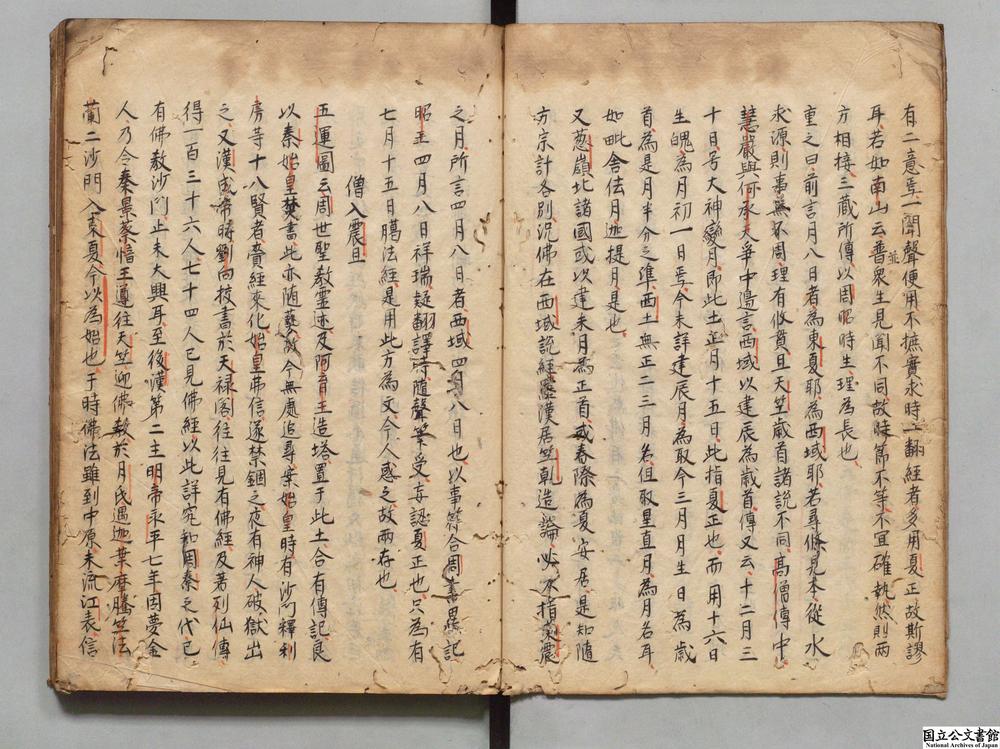 有二意焉一聞聲便用不摭實求時二翻經者多用夏正故斯謬
耳若如南山云普衆生見聞不同故時節不等不宜確執然則兩
並
方相接三藏所傳以周昭時生理為長也
重之曰前言月八日者為東夏耶為西域耶若尋條見本從水
求源則事無不周理有攸貫且天竺歲首諸說不同高僧傳中
慧嚴與何承天爭中邊言西域以建辰為歲首傳又云十二月三
十日号大神變月即此土正月十五日此指夏正也而用十六日
生魄為月初一日焉今未詳建辰月為取今三月月生日為歲
首為是月半分之準西土無正二三月名但取星直月為月名耳
如毗舍佉月迦提月是也
又葱嶺北諸國或以建未月為正首或春際為夏安居是知隨
方宗計各別況佛在西域說經羅漢居竺乾造論必不指東震
之月所言四月八日者西域四月八日也以事符合周書異記
昭王四月八日祥瑞疑翻譯時隨聲筆受妄認夏正也只為有
七月十五日臈法經是用此方為文令人惑之故兩存也
僧入震旦
五運圖云周世聖教靈迹及阿育王造塔置于此土合有傳記良
以秦始皇焚書此亦隨藝故令無處追尋案始皇時有沙門釋利
房等十八賢者賷經來化始皇弗信遂禁錮之夜有神人破獄出
之又漢成帝時劉向挍書於天禄閣往往見有佛經及著列仙傳
得一百三十六人七十四人已見佛經以此詳究知周秦之代已
有佛教沙門止未大興耳至後漢第二主明帝永平七年因夢金
人乃令秦景蔡愔王遵往天竺迎佛教於月氏遇迦葉摩騰竺法
蘭二沙門入東夏今以為始也于時佛法雖到中原未流江表信
国立公文書館
National Archives of Japan